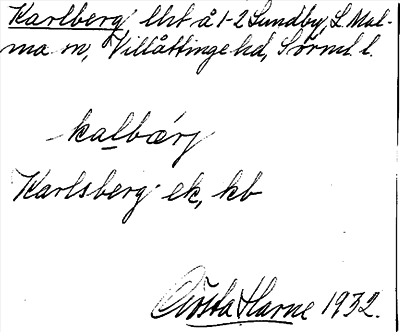 Karlberg lht å 1-2 Sundby, L. Mal-
ma sn, Villåttinge hd, Sörml. l.
kalbærj
Karlsberg ek, kb
Gösta Harne 1932.